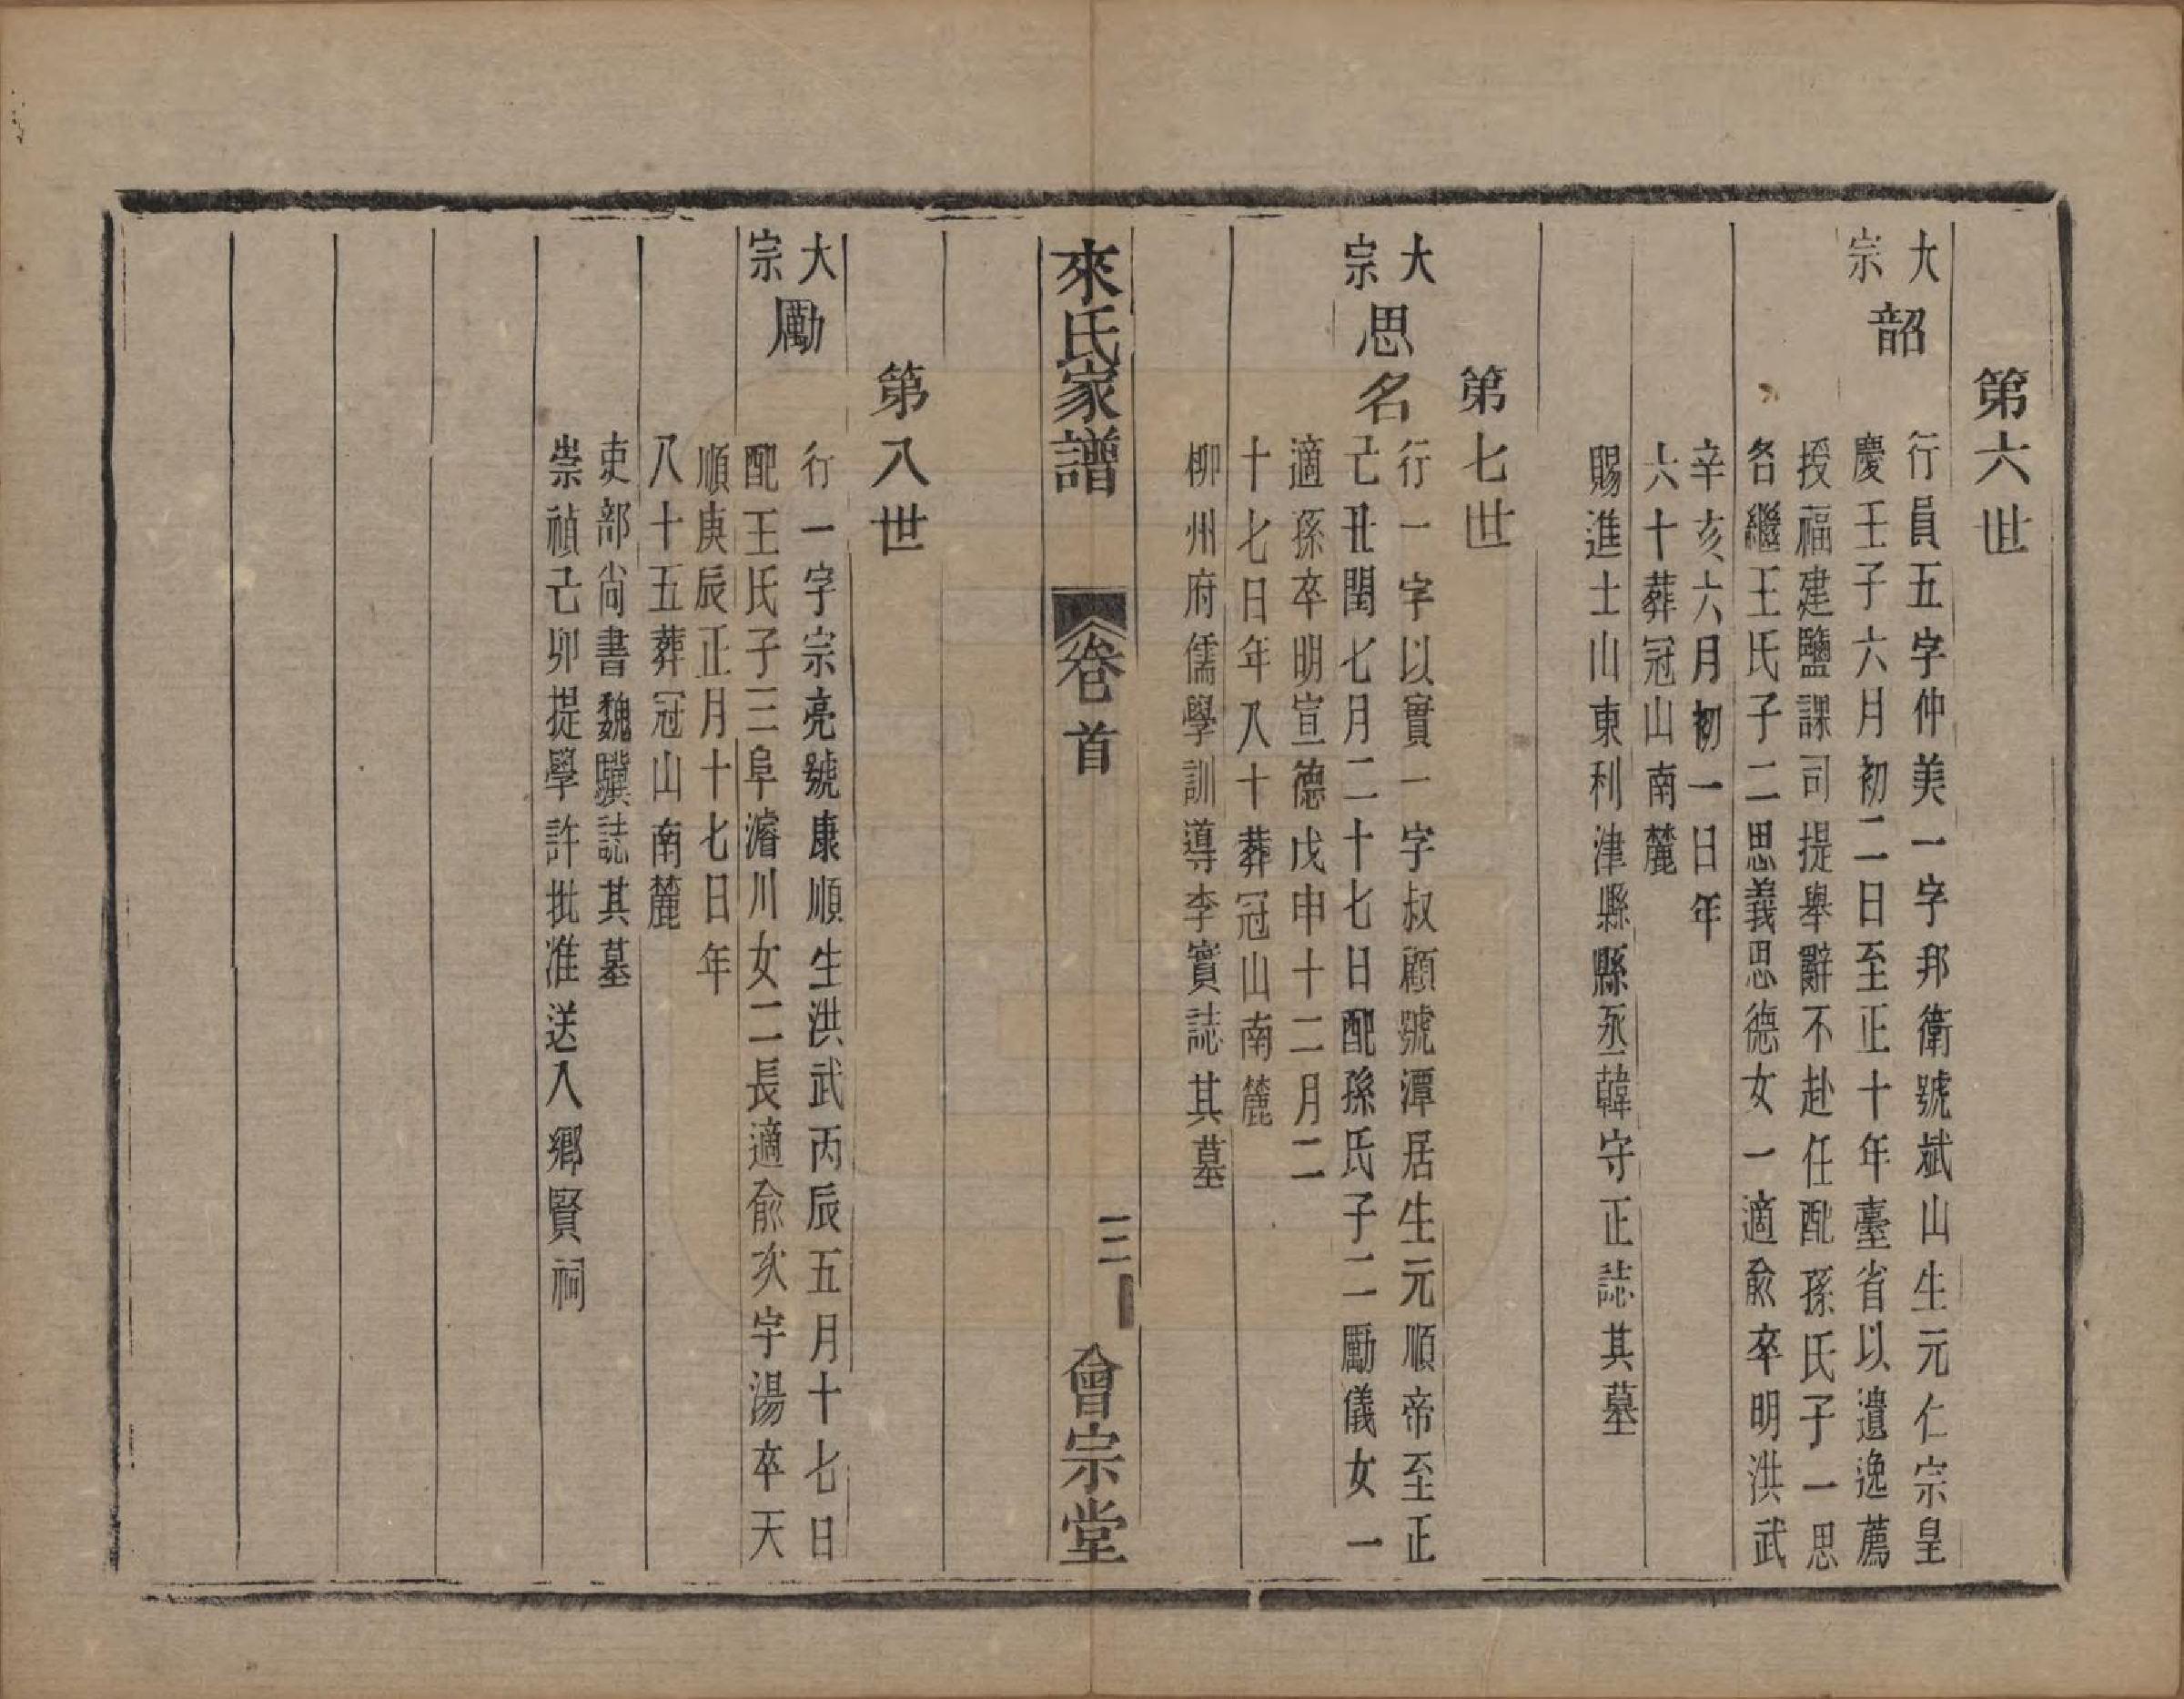 第六世
大宗 韶
行員五字仲美一字邦衛號斌山生元仁宗皇
慶壬子六月初二日至正十年臺省以遺逸薦
授福建鹽課司提舉辭不赴任配孫氏子一思
名繼王氏子二思義思德女一適俞卒明洪武
辛亥六月初一日年
六十葬冠山南麓
賜進士山東利津縣縣丞韓守正誌其墓
第七世
大宗 思名
行一字以實一字叔顧號潭居生元順帝至正
己丑閏七月二十七日配孫氏子二勵儀女一
適孫卒明宣德戊申十二月二
十七日年八十葬冠山南麓
柳州府儒學訓導李實誌其墓
來氏家譜 卷首 三 會宗堂
第八世
大宗 勵
行一字宗亮號康順生洪武丙辰五月十七日
配王氏子三阜濬川女二長適俞次字湯卒天
順庚辰正月十七日年
八十五葬冠山南麓
吏部尚書魏驥誌其墓
崇禎己卯提學許批准送入鄉賢祠